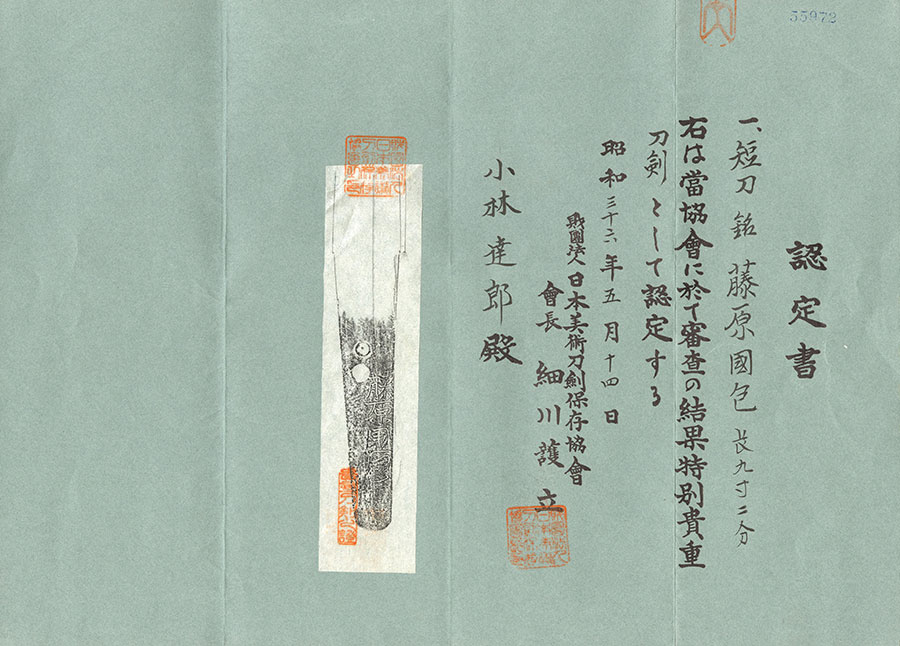 55972
認定書
一、短刀 銘 藤原國包 長九寸二分
右は當協會に於て審査の結果特別貴重
刀剣として認定する
昭和三十六年五月十四日
財團法人日本美術刀劍保存協會
會長 細川護立
小林達郎殿